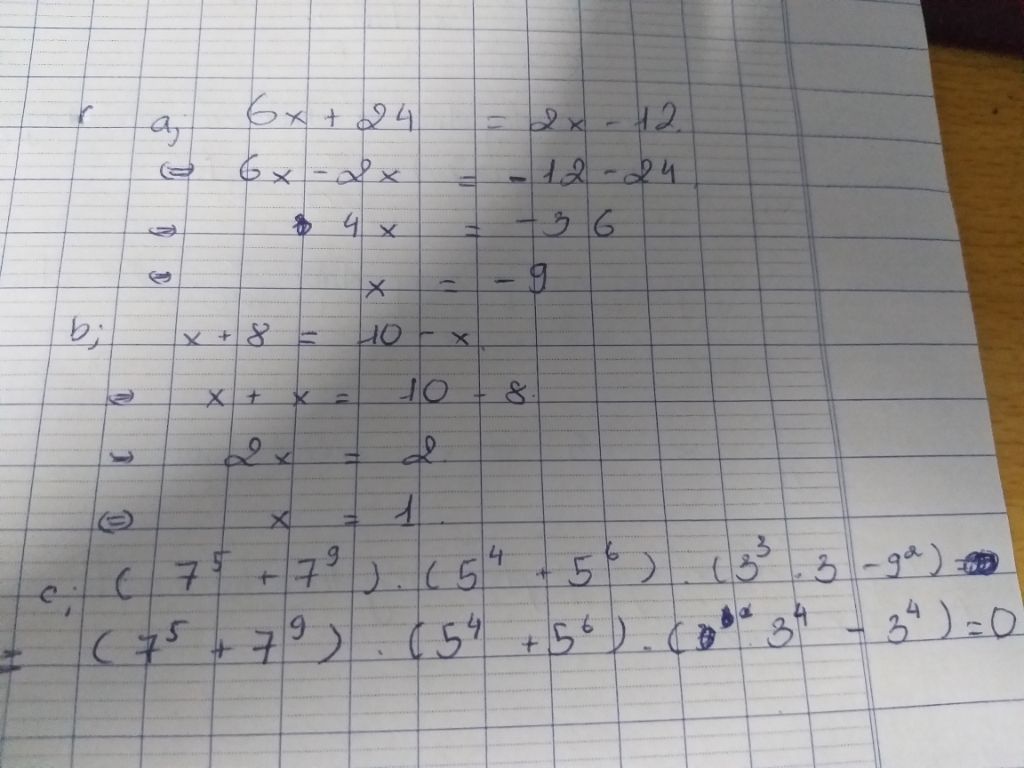 a; 6x + 24 = 2x - 12
⇔ 6x - 2x = - 12 - 24
⇔ 4x = - 36
⇔ x = - 9
b; x + 8 = 10 - x
⇔ x + x = 10 - 8
⇔ 2x = 2
⇔ x = 1
c; (7⁵ + 7⁹) . (5⁴ + 5⁶) . (3³ . 3 - 9²)
= (7⁵ + 7⁹) . (5⁴ + 5⁶) . (3⁴ - 3⁴) = 0